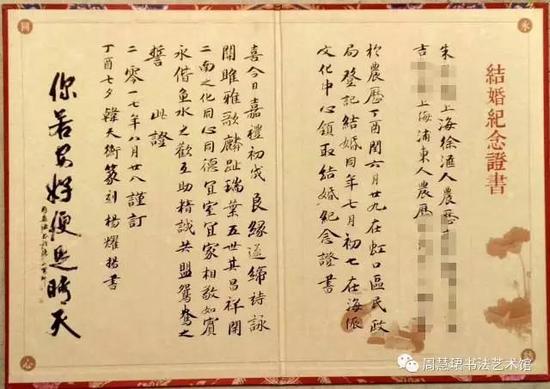 結婚紀念證書
朱 上海徐滙人農歷
吉 上海浦東人農歷
於農歷丁酉閏六月廿九在虹口區民政
局登記結婚同年七月初七在海派
文化中心領取結婚紀念證書
喜今日嘉禮初成良緣遂締詩詠
關雎雅歌麟趾瑞葉五世其昌祥開
二南之化同心同德宜室宜家相敬如賓
永偕魚水之歡互助精誠共盟鴛鴦之
誓 此證
二零一七年八月廿八謹訂
丁酉七夕韓天衡篆刻楊耀揚書
你若安好便是晴天
永
同
心
周慧珺书法艺术馆